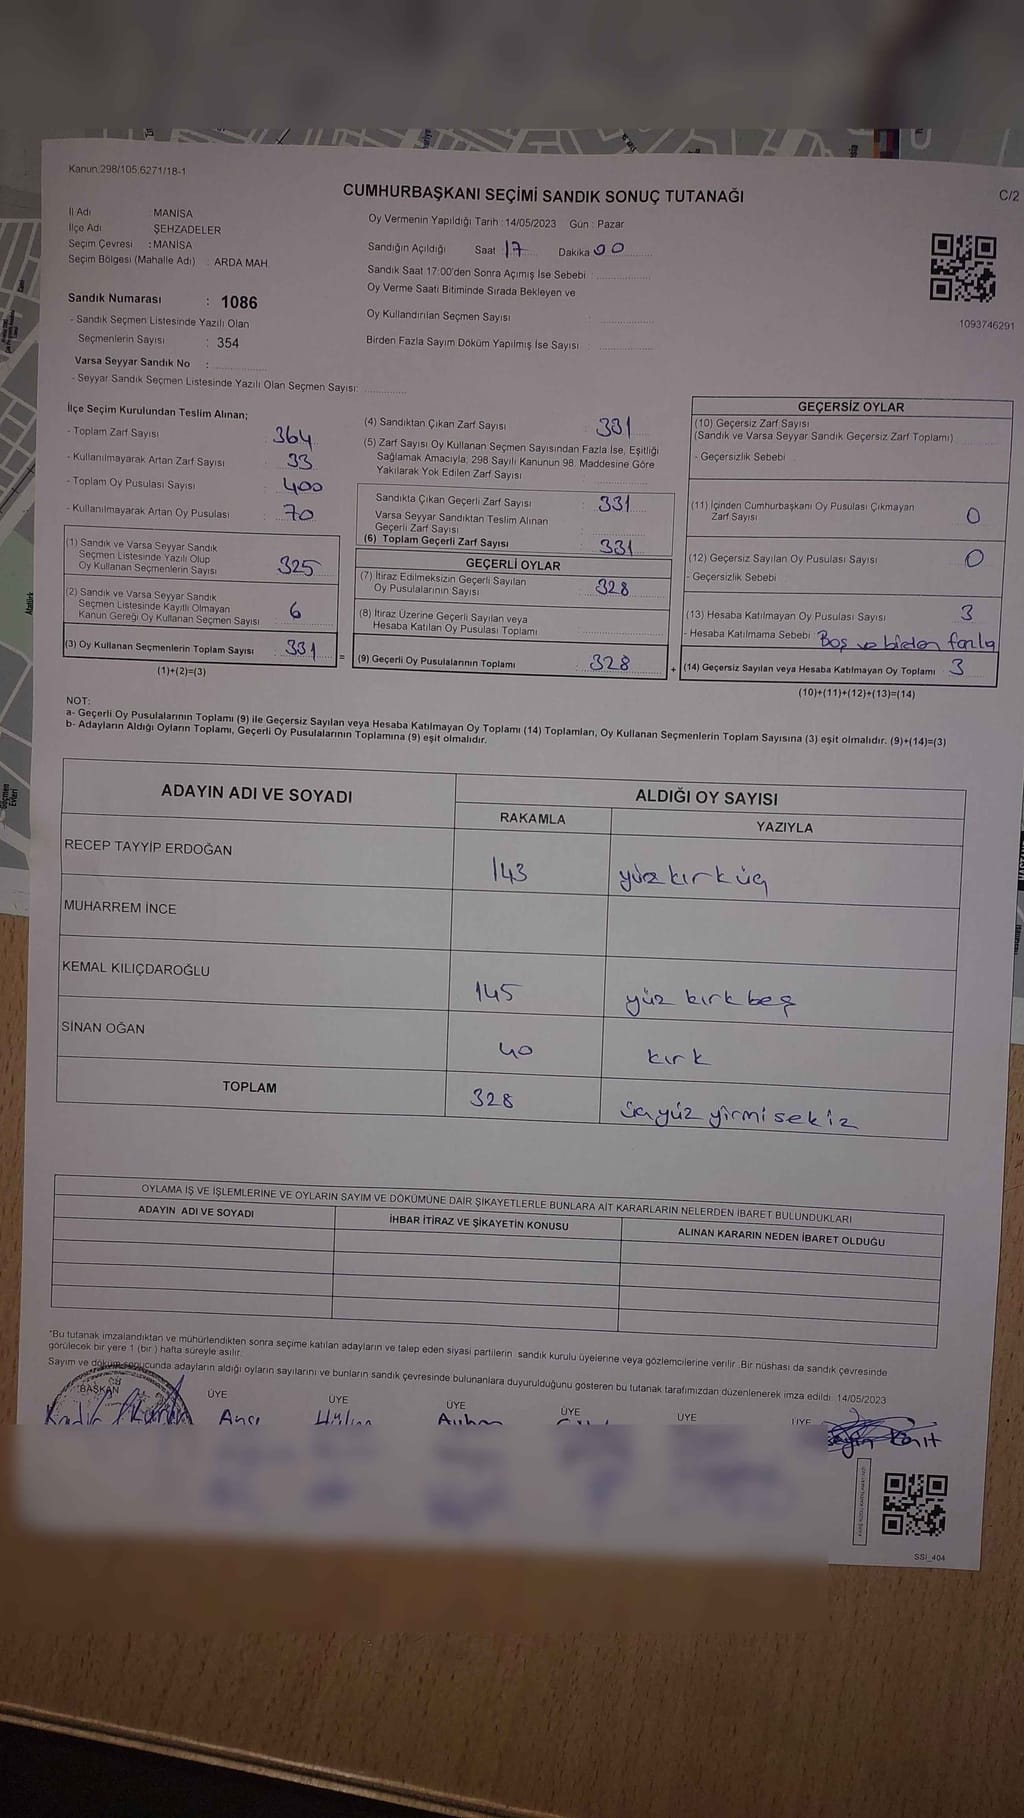 Kanun.298/105,6271/18-1
CUMHURBAŞKANI SEÇİMİ SANDIK SONUÇ TUTANAĞI
C/2
İl Adı : MANİSA
İlçe Adı ŞEHZADELER
Seçim Çevresi : MANİSA
Seçim Bölgesi (Mahalle Adı) : ARDA MAH.
Sandık Numarası : 1086
- Sandık Seçmen Listesinde Yazılı Olan
Seçmenlerin Sayısı : 354
Varsa Seyyar Sandık No :
- Seyyar Sandık Seçmen Listesinde Yazılı Olan Seçmen Sayısı:
Oy Vermenin Yapıldığı Tarih : 14/05/2023 Gün : Pazar
Sandığın Açıldığı Saat 17 Dakika 00
Sandık Saat 17:00'den Sonra Açımış İse Sebebi :
Oy Verme Saati Bitiminde Sırada Bekleyen ve
Oy Kullandırılan Seçmen Sayısı :
Birden Fazla Sayım Döküm Yapılmış İse Sayısı :
1093746291
İlçe Seçim Kurulundan Teslim Alınan;
- Toplam Zarf Sayısı : 364
- Kullanılmayarak Artan Zarf Sayısı : 33
- Toplam Oy Pusulası Sayısı : 400
- Kullanılmayarak Artan Oy Pusulası : 70
(1) Sandık ve Varsa Seyyar Sandık
Seçmen Listesinde Yazılı Olup
Oy Kullanan Seçmenlerin Sayısı : 325
(2) Sandık ve Varsa Seyyar Sandık
Seçmen Listesinde Kayıtlı Olmayan
Kanun Gereği Oy Kullanan Seçmen Sayısı : 6
(3) Oy Kullanan Seçmenlerin Toplam Sayısı : 331
(1)+(2)=(3)
(4) Sandıktan Çıkan Zarf Sayısı : 331
(5) Zarf Sayısı Oy Kullanan Seçmen Sayısından Fazla İse, Eşitliği
Sağlamak Amacıyla, 298 Sayılı Kanunun 98. Maddesine Göre
Yakılarak Yok Edilen Zarf Sayısı :
Sandıkta Çıkan Geçerli Zarf Sayısı : 331
Varsa Seyyar Sandıktan Teslim Alınan
Geçerli Zarf Sayısı :
(6) Toplam Geçerli Zarf Sayısı : 331
GEÇERLİ OYLAR
(7) İtiraz Edilmeksizin Geçerli Sayılan
Oy Pusulalarının Sayısı : 328
(8) İtiraz Üzerine Geçerli Sayılan veya
Hesaba Katılan Oy Pusulası Toplamı :
= (9) Geçerli Oy Pusulalarının Toplamı : 328
GEÇERSİZ OYLAR
(10) Geçersiz Zarf Sayısı
(Sandık ve Varsa Seyyar Sandık Geçersiz Zarf Toplamı)
- Geçersizlik Sebebi
(11) İçinden Cumhurbaşkanı Oy Pusulası Çıkmayan
Zarf Sayısı 0
(12) Geçersiz Sayılan Oy Pusulası Sayısı : 0
- Geçersizlik Sebebi
(13) Hesaba Katılmayan Oy Pusulası Sayısı : 3
- Hesaba Katılmama Sebebi : Boş ve birden fazla
+ (14) Geçersiz Sayılan veya Hesaba Katılmayan Oy Toplamı : 3
(10)+(11)+(12)+(13)=(14)
NOT:
a- Geçerli Oy Pusulalarının Toplamı (9) ile Geçersiz Sayılan veya Hesaba Katılmayan Oy Toplamı (14) Toplamları, Oy Kullanan Seçmenlerin Toplam Sayısına (3) eşit olmalıdır. (9)+(14)=(3)
b- Adayların Aldığı Oyların Toplamı, Geçerli Oy Pusulalarının Toplamına (9) eşit olmalıdır.
ADAYIN ADI VE SOYADI
ALDIĞI OY SAYISI
RAKAMLA YAZIYLA
RECEP TAYYİP ERDOĞAN 143 yüz kırk üç
MUHARREM İNCE
KEMAL KILIÇDAROĞLU 145 yüz kırk beş
SİNAN OĞAN 40 kırk
TOPLAM 328 üçyüz yirmi sekiz
OYLAMA İŞ VE İŞLEMLERİNE VE OYLARIN SAYIM VE DÖKÜMÜNE DAİR ŞİKAYETLERLE BUNLARA AİT KARARLARIN NELERDEN İBARET BULUNDUKLARI
ADAYIN ADI VE SOYADI İHBAR İTİRAZ VE ŞİKAYETİN KONUSU ALINAN KARARIN NEDEN İBARET OLDUĞU
*Bu tutanak imzalandıktan ve mühürlendikten sonra seçime katılan adayların ve talep eden siyasi partilerin sandık kurulu üyelerine veya gözlemcilerine verilir. Bir nüshası da sandık çevresinde
görülecek bir yere 1 (bir) hafta süreyle asılır.
Sayım ve döküm sonucunda adayların aldığı oyların sayılarını ve bunların sandık çevresinde bulunanlara duyurulduğunu gösteren bu tutanak tarafımızdan düzenlenerek imza edildi. 14/05/2023
BAŞKAN ÜYE ÜYE ÜYE ÜYE ÜYE ÜYE
SSI_404